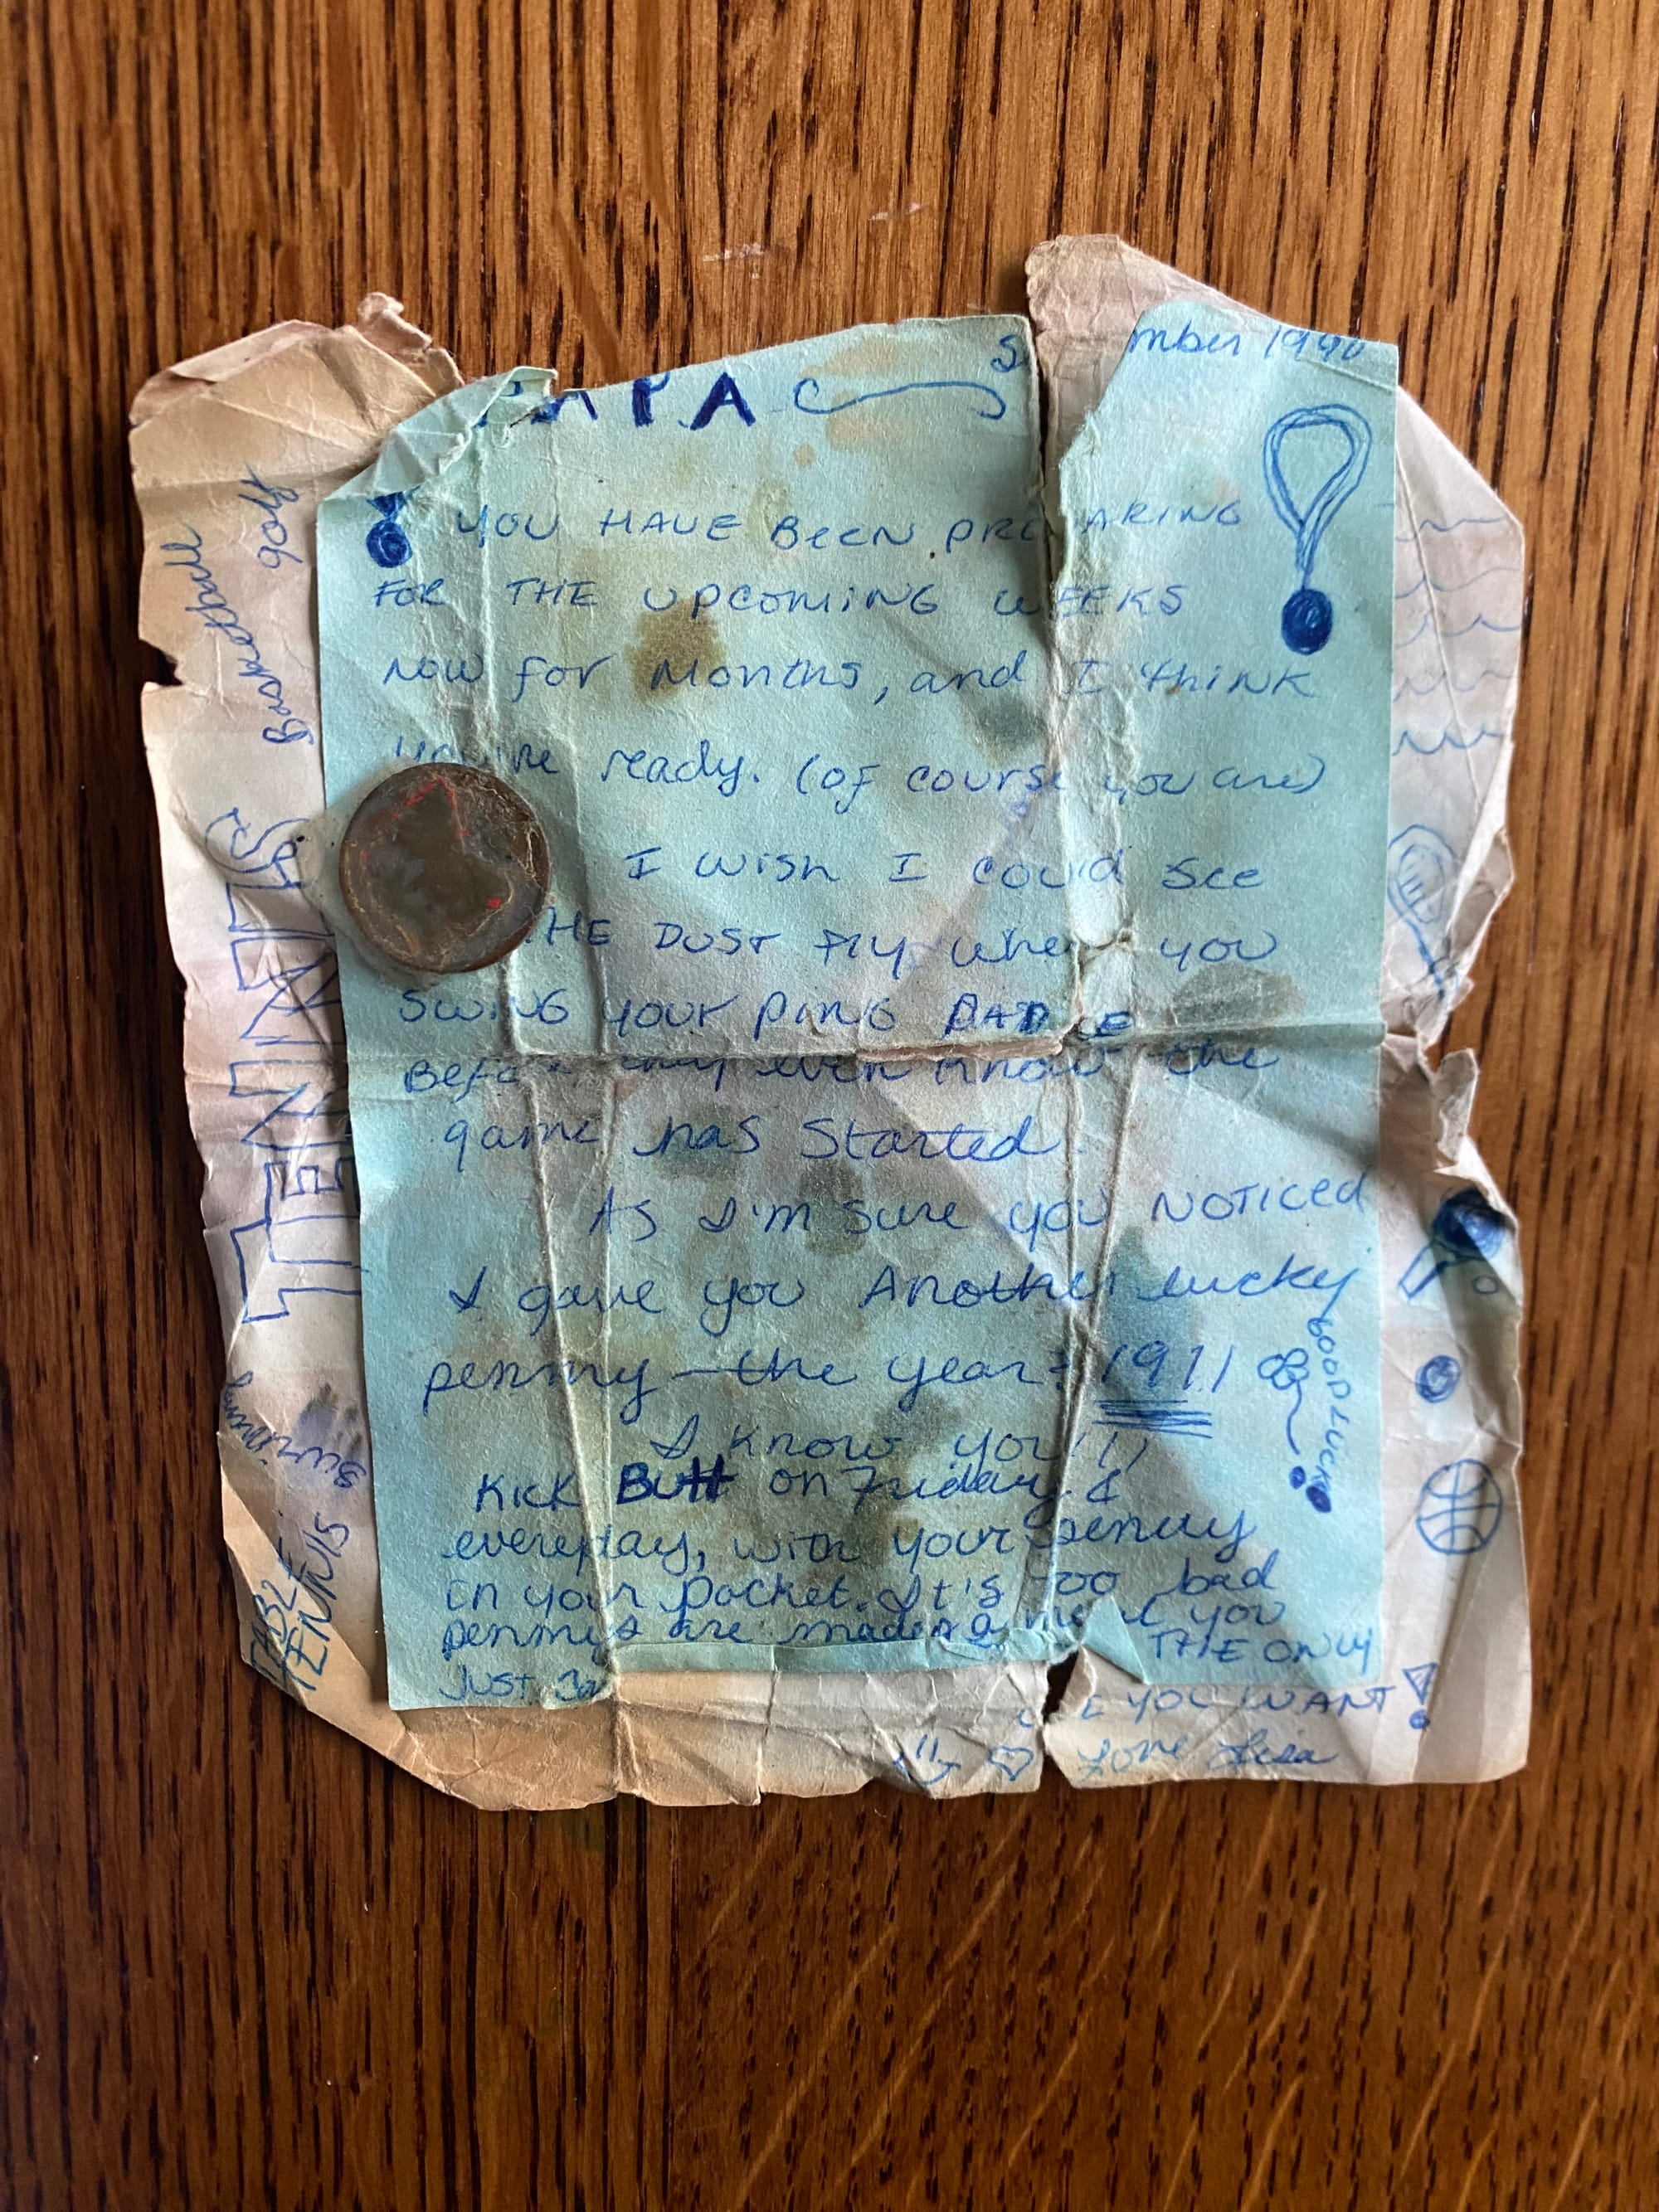 PAPA
mber 1990
YOU HAVE BEEN PRE ARING
FOR THE UPCOMING WEEKS
NOW for Months, and I think
you're ready. (of course you are)
I wish I could see
THE DUST FLY when you
SWING YOUR PING PADDLE
Before they even know the
game has Started.
AS I'm sure you NOTICED
I gave you Another lucky
penny - the year: 1971
GOOD LUCK
I know you'll
Kick Butt on Friday &
everyday, with your penny
in your pocket. It's too bad
pennys are made
you
THE ONLY
JUST
E YOU WANT!
Love Lisa
Basketball
golf
TENNIS
Swimming
TABLE
TENNIS